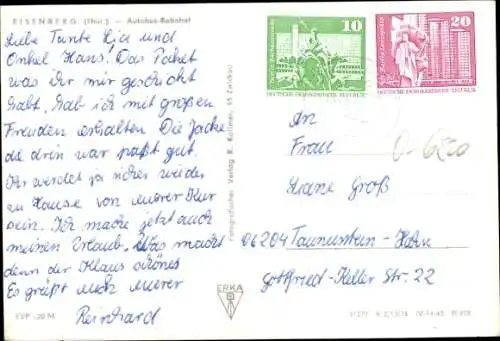 EISENBERG (Thür.) — Autobus-Bahnhof
Liebe Tante Lia und
Onkel Hans! Das Paket
was ihr mir geschickt
habt, hab ich mit großen
Freuden erhalten Die Jacke
die drin war paßt gut.
Ihr werdet ja sicher wieder
zu Hause von eurer Kur
sein. Ich mache jetzt auch
meinen Urlaub. Was macht
denn der Klaus schönes
Es grüßt euch eurer
Reinhard
EVP -,20 M
Fotografischer Verlag R. Kallmer, 95 Zwickau
ERKA
10
DEUTSCHE DEMOKRATISCHE REPUBLIK
20
DEUTSCHE DEMOKRATISCHE REPUBLIK
An
Frau
Groß
06204 Taunusstein-Hahn
Gottfried-Keller Str. 22